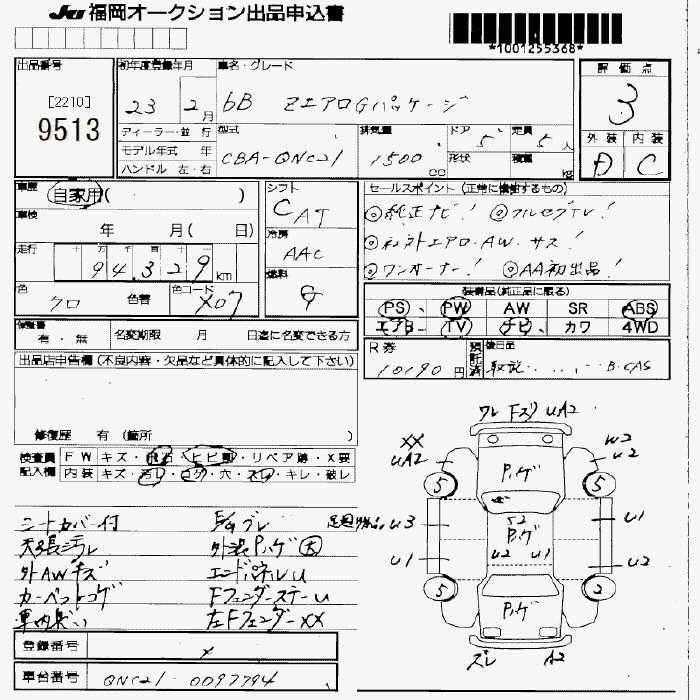 JU 福岡オークション出品申込書
*1001255368*
出品番号
[2210]
9513
初年度登録年月
23 2月
車名・グレード
bB Zエアロ Gパッケージ
評価点
3
外装 内装
D C
ディーラー・並行
モデル年式 年
ハンドル 左・右
型式
CBA-QNC21
排気量
1500 cc
ドア
5
形状
定員
5人
積載
kg
車歴
自家用( )
車検
年 月( 日)
走行
十 万 千 百 十
94,329 km
色
クロ
色替
色コード
X07
シフト
CAT
冷房
AAC
燃料
G
セールスポイント (正常に機能するもの)
◎純正ナビ! ◎フルセグTV!
◎社外エアロ・AW・サス!
◎ワンオーナー! ◎AA初出品!
装備品(純正品に限る)
PS PW AW SR ABS
エアB TV ナビ カワ 4WD
保証書
有・無
名変期限 月 日迄に名変できる方
R券
10190円
預託済
後日品
取説 B-CAS
出品店申告欄 (不良内容・欠品など具体的に記入して下さい)
修復歴 有 (箇所 )
検査員記入欄
FW キズ・飛石・ヒビ割・リペア跡・X要
内装 キズ・汚レ・コゲ・穴・スレ・キレ・破レ
シートカバー付
天張汚レ
外AWキズ
カーペットコゲ
車内臭い
外装Pハゲ大
エンドパネルU
FフェンダーステーU
左FフェンダーXX
ワレ Fズレ UA2
XX
UA2
W2
U2
5 5
P.ハゲ
U3
S2
P.ハゲ
U2 U1
U1
U1
U2
5 2
P.ハゲ
ズレ A2
登録番号
車台番号
QNC21-0097794